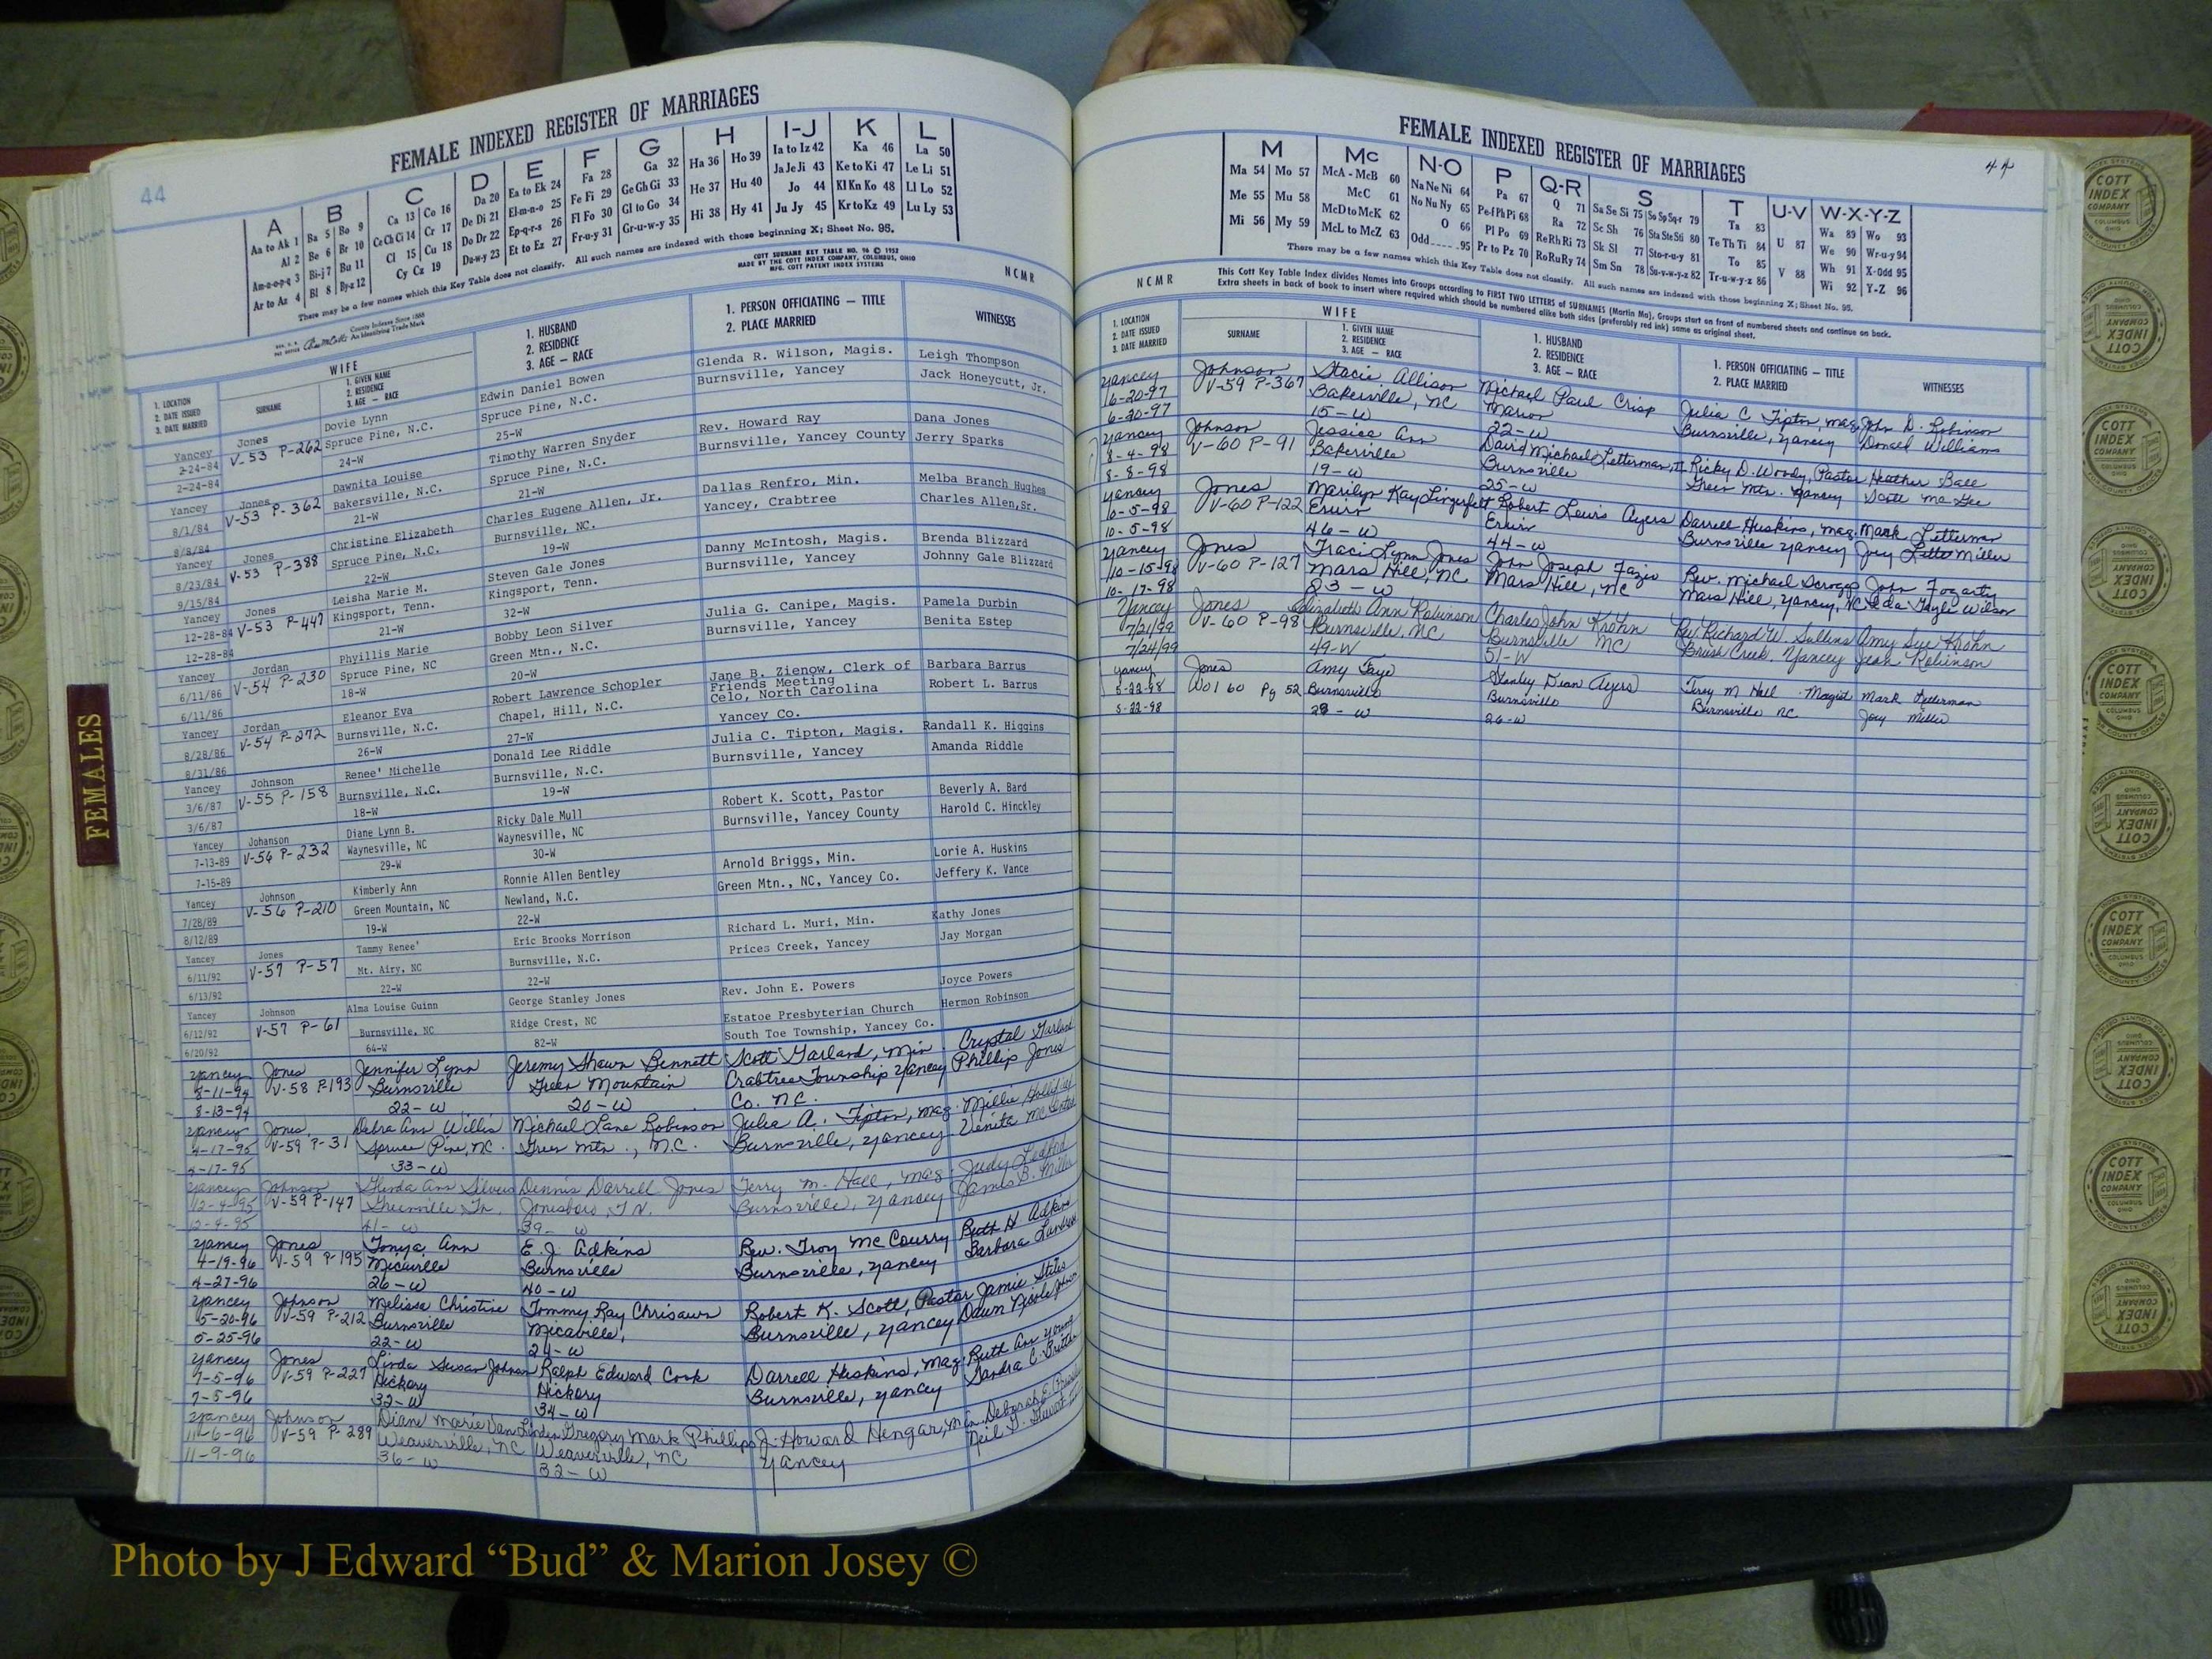 FEMALE INDEXED REGISTER OF MARRIAGES
44
A B C D E F G H I-J K L
Aa to Ak 1 Ba 5 Bo 9 Ca 13 Co 16 Da 20 Ea to Ek 24 Fa 28 Ga 32 Ha 36 Ho 39 Ia to Iz 42 Ka 46 La 50
Al 2 Be 6 Br 10 Ce Ch Ci 14 Cr 17 De Di 21 El-m-n-o 25 Fe Fi 29 Ge Gh Gi 33 He 37 Hu 40 Ja Je Ji 43 Ke to Ki 47 Le Li 51
Am-n-o-p-q 3 Bi-j 7 Bu 11 Cl 15 Cu 18 Do Dr 22 Ep-q-r-s 26 Fl Fo 30 Gl to Go 34 Hi 38 Hy 41 Jo 44 Kl Kn Ko 48 Ll Lo 52
Ar to Az 4 Bl 8 By-z 12 Cy Cz 19 Du-w-y 23 Et to Ez 27 Fr-u-y 31 Gr-u-w-y 35 Ju Jy 45 Kr to Kz 49 Lu Ly 53
There may be a few names which this Key Table does not classify. All such names are indexed with those beginning X; Sheet No. 95.
COTT SURNAME KEY TABLE NO. 96 © 1952
MADE BY THE COTT INDEX COMPANY, COLUMBUS, OHIO
MFG. COTT PATENT INDEX SYSTEMS
County Indexes Since 1888
An Identifying Trade Mark
NCMR
1. LOCATION
2. DATE ISSUED
3. DATE MARRIED
WIFE
SURNAME
1. GIVEN NAME
2. RESIDENCE
3. AGE — RACE
1. HUSBAND
2. RESIDENCE
3. AGE — RACE
1. PERSON OFFICIATING — TITLE
2. PLACE MARRIED
WITNESSES
Yancey Jones Dovie Lynn Edwin Daniel Bowen Glenda R. Wilson, Magis. Leigh Thompson
2-24-84 V-53 P-262 Spruce Pine, N.C. Spruce Pine, N.C. Burnsville, Yancey Jack Honeycutt, Jr.
2-24-84 24-W 25-W
Yancey Jones Dawnita Louise Timothy Warren Snyder Rev. Howard Ray Dana Jones
8/1/84 V-53 P-362 Bakersville, N.C. Spruce Pine, N.C. Burnsville, Yancey County Jerry Sparks
8/8/84 21-W 21-W
Yancey Jones Christine Elizabeth Charles Eugene Allen, Jr. Dallas Renfro, Min. Melba Branch Hughes
8/23/84 V-53 P-388 Spruce Pine, N.C. Burnsville, NC. Yancey, Crabtree Charles Allen, Sr.
9/15/84 22-W 19-W
Yancey Jones Leisha Marie M. Steven Gale Jones Danny McIntosh, Magis. Brenda Blizzard
12-28-84 V-53 P-447 Kingsport, Tenn. Kingsport, Tenn. Burnsville, Yancey Johnny Gale Blizzard
12-28-84 21-W 32-W
Yancey Jordan Phyillis Marie Bobby Leon Silver Julia G. Canipe, Magis. Pamela Durbin
6/11/86 V-54 P-230 Spruce Pine, NC Green Mtn., N.C. Burnsville, Yancey Benita Estep
6/11/86 18-W 20-W
Yancey Jordan Eleanor Eva Robert Lawrence Schopler Jane B. Zienow, Clerk of Barbara Barrus
8/28/86 V-54 P-272 Burnsville, N.C. Chapel, Hill, N.C. Friends Meeting Robert L. Barrus
8/31/86 26-W 27-W Celo, North Carolina
Yancey Co.
Yancey Johnson Renee' Michelle Donald Lee Riddle Julia C. Tipton, Magis. Randall K. Higgins
3/6/87 V-55 P-158 Burnsville, N.C. Burnsville, N.C. Burnsville, Yancey Amanda Riddle
3/6/87 18-W 19-W
Yancey Johanson Diane Lynn B. Ricky Dale Mull Robert K. Scott, Pastor Beverly A. Bard
7-13-89 V-56 P-232 Waynesville, NC Waynesville, NC Burnsville, Yancey County Harold C. Hinckley
7-15-89 29-W 30-W
Yancey Johnson Kimberly Ann Ronnie Allen Bentley Arnold Briggs, Min. Lorie A. Huskins
7/28/89 V-56 P-210 Green Mountain, NC Newland, N.C. Green Mtn., NC, Yancey Co. Jeffery K. Vance
8/12/89 19-W 22-W
Yancey Jones Tammy Renee' Eric Brooks Morrison Richard L. Muri, Min. Kathy Jones
6/11/92 V-57 P-57 Mt. Airy, NC Burnsville, N.C. Prices Creek, Yancey Jay Morgan
6/13/92 22-W 22-W
Yancey Johnson Alma Louise Guinn George Stanley Jones Rev. John E. Powers Joyce Powers
6/12/92 V-57 P-61 Burnsville, NC Ridge Crest, NC Estatoe Presbyterian Church Hermon Robinson
6/20/92 64-W 82-W South Toe Township, Yancey Co.
Yancey Jones Jennifer Lynn Jeremy Shawn Bennett Scott Garland, Min. Crystal Garland
8-11-94 V-58 P-193 Burnsville Green Mountain Crabtree Township Yancey Phillip Jones
8-13-94 22-W 20-W Co. NC.
Yancey Jones Debra Ann Willis Michael Lane Robinson Julia A. Tipton, Mag. Millie Holliday
4-17-95 V-59 P-31 Spruce Pine, NC. Green Mtn., N.C. Burnsville, Yancey Venita
4-17-95 33-W
Yancey Johnson Glenda Ann Silvers Dennis Darrell Jones Terry M. Hall, Mag. Judy Ledford
12-4-95 V-59 P-147 Greenville Tn. Jonesboro, TN. Burnsville, Yancey James B. Miller
12-4-95 41-W 39-W
Yancey Jones Tonya Ann E. J. Adkins Rev. Troy McCourry Ruth H Adkins
4-19-96 V-59 P-195 Micaville Burnsville Burnsville, Yancey Barbara
4-27-96 26-W 40-W
Yancey Johnson Melissa Christine Tommy Ray Chrisawn Robert K. Scott, Pastor Jamie Stiles
5-20-96 V-59 P-212 Burnsville Micaville, Burnsville, Yancey Dawn Nicole
5-25-96 22-W 24-W
Yancey Jones Linda Susan Johnson Ralph Edward Cook Darrell Huskins, Mag. Ruth Ann Young
7-5-96 V-59 P-227 Hickory Hickory Burnsville, Yancey Sandra C.
7-5-96 32-W 34-W
Yancey Johnson Diane Marie Van Linden Gregory Mark Phillips J. Howard Hengar, Min Deborah E.
11-6-96 V-59 P-289 Weaverville, NC Weaverville, NC Yancey Neil G. Stewart
11-9-96 36-W 32-W
FEMALES
FEMALE INDEXED REGISTER OF MARRIAGES
44
M Mc N-O P Q-R S T U-V W-X-Y-Z
Ma 54 Mo 57 McA - McB 60 Na Ne Ni 64 Pa 67 Q 71 Sa Se Si 75 So Sp Sq-r 79 Ta 83 U 87 Wa 89 Wo 93
Me 55 Mu 58 McC 61 No Nu Ny 65 Pe-f Ph Pi 68 Ra 72 Sc Sh 76 Sta Ste Sti 80 Te Th Ti 84 V 88 We 90 Wr-u-y 94
Mi 56 My 59 McD to McK 62 O 66 Pl Po 69 Re Rh Ri 73 Sk Sl 77 Sto-r-u-y 81 To 85 Wh 91 X-Odd 95
McL to McZ 63 Odd 95 Pr to Pz 70 Ro Ru Ry 74 Sm Sn 78 Su-v-w-y-z 82 Tr-u-w-y-z 86 Wi 92 Y-Z 96
There may be a few names which this Key Table does not classify. All such names are indexed with those beginning X; Sheet No. 95.
This Cott Key Table Index divides Names into Groups according to FIRST TWO LETTERS of SURNAMES (Martin Ma), Groups start on front of numbered sheets and continue on back.
Extra sheets in back of book to insert where required which should be numbered alike both sides (preferably red ink) same as original sheet.
NCMR
1. LOCATION
2. DATE ISSUED
3. DATE MARRIED
WIFE
SURNAME
1. GIVEN NAME
2. RESIDENCE
3. AGE — RACE
1. HUSBAND
2. RESIDENCE
3. AGE — RACE
1. PERSON OFFICIATING — TITLE
2. PLACE MARRIED
WITNESSES
Yancey Johnson Stacie Allison Michael Paul Crisp Julia C Tipton, Mag. John D. Robinson
6-20-97 V-59 P-367 Bakersville, NC Marion Burnsville, Yancey Donald Williams
6-20-97 15-W 22-W
Yancey Johnson Jessica Ann David Michael Letterman, II Ricky D. Woody, Pastor Heather Ball
8-4-98 V-60 P-91 Bakersville Burnsville Green Mtn. Yancey Scott McGee
8-8-98 19-W 25-W
Yancey Jones Marilyn Kay Lingerfelt Robert Lewis Ayers Darrell Huskins, Mag. Mark Letterman
10-5-98 V-60 P-122 Erwin Erwin Burnsville Yancey Joey Miller
10-5-98 46-W 44-W
Yancey Jones Traci Lynn Jones John Joseph Fazio Rev. Michael Scroggs John Fogarty
10-15-98 V-60 P-127 Mars Hill, NC Mars Hill, NC Mars Hill, Yancey, NC Leda Gayle Wilson
10-17-98 23-W
Yancey Jones Elizabeth Ann Robinson Charles John Krohn Rev. Richard W. Sullins Amy Sue Krohn
7/21/99 V-60 P-98 Burnsville, NC Burnsville NC Brush Creek, Yancey Jean Robinson
7/24/99 49-W 51-W
Yancey Jones Amy Faye Stanley Dean Ayers Terry M Hall Magist Mark Letterman
5-22-98 Vol 60 Pg 52 Burnsville Burnsville Burnsville NC Joey Miller
5-22-98 28-W 26-W
COTT INDEX COMPANY COLUMBUS OHIO
Photo by J Edward “Bud” & Marion Josey ©